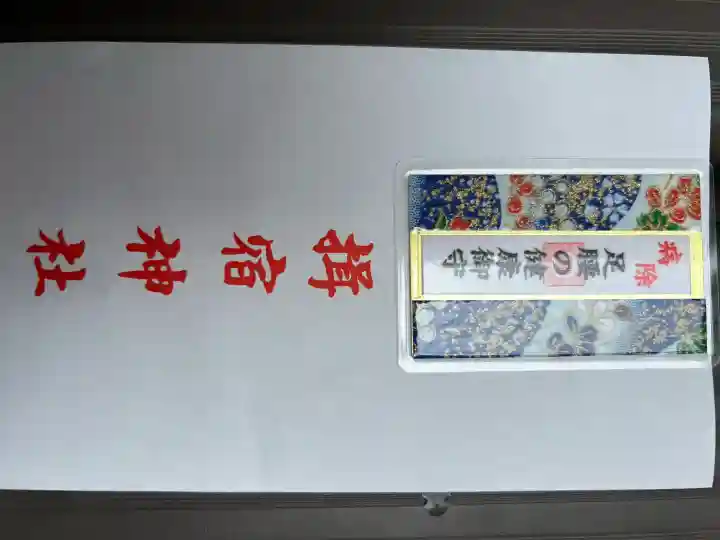 病除
足腰の健康御守
揖宿神社